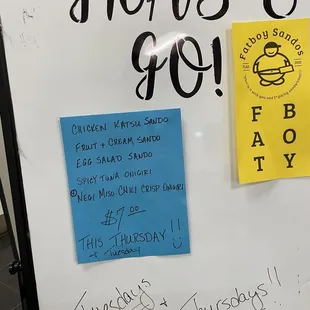 GO!
Fatboy Sandos
FAT BOY
CHICKEN KATSU SANDO
FRUIT + CREAM SANDO
EGG SALAD SANDO
SPICY TUNA ONIGIRI
NEGI MISO CHILI CRISP ONIGIRI
$7.00
THIS THURSDAY!!
+ Tuesday
Tuesdays
+ Thursdays!!